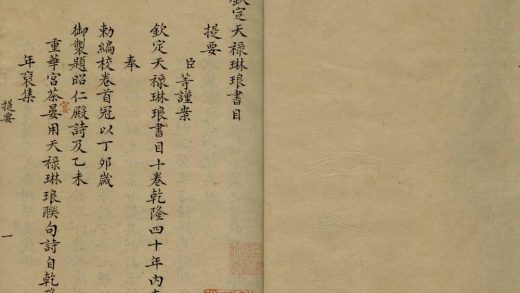 欽定天祿琳琅書目
提要
臣等謹案
欽定天祿琳琅書目十卷乾隆四十年內
奉
勅編校卷首冠以丁卯歲
御製題昭仁殿詩及乙未
重華宮茶宴用天祿琳琅聮句詩自乾
宮
年裒集
提要
一